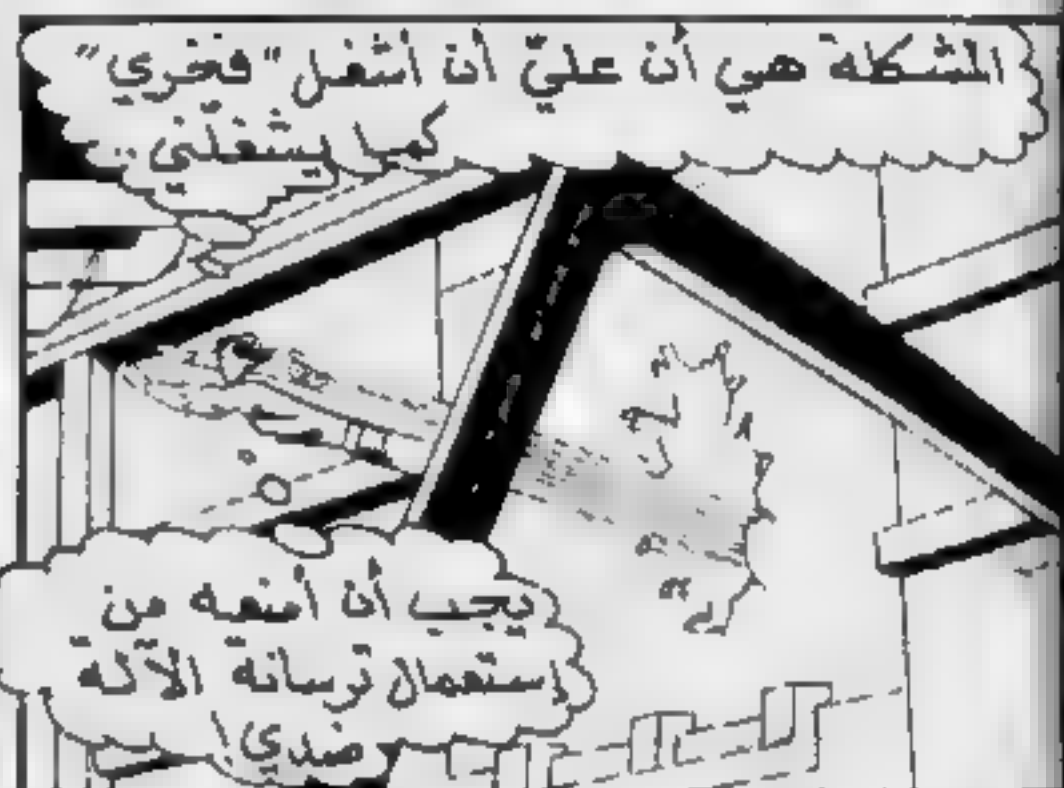 المشكلة هي أن عليّ أن أشغل "فخري"
كما يشغلني ..
يجب أن أمنعه من
إستعمال ترسانة الآلة
ضدي !